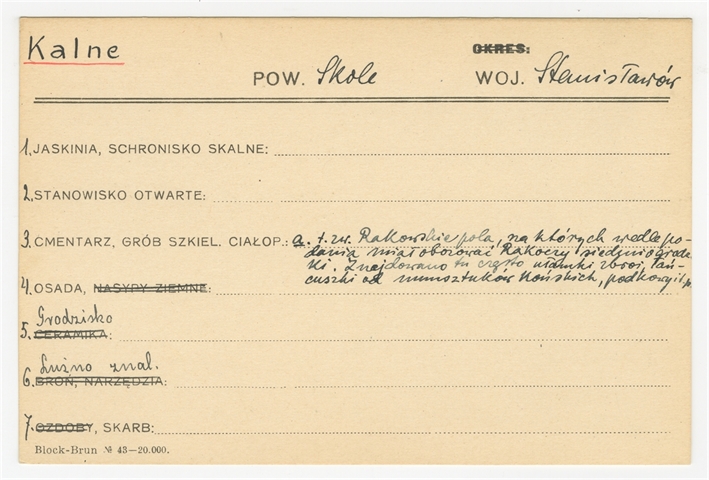 Kalne
OKRES:
POW. Skole WOJ. Stanisławów
1. JASKINIA, SCHRONISKO SKALNE:
2. STANOWISKO OTWARTE:
3. CMENTARZ, GRÓB SZKIEL. CIAŁOP.: a. t. zw. Rakowskie pola, na których wedle po-
dania miał obozować Rakoczy siedmiogrodz
ki. Znajdowano tu często ułamki zbroi, łań-
cuszki od munsztuków końskich, podkowy itp.
4. OSADA, NASYPY ZIEMNE:
Grodzisko
5. CERAMIKA:
Luźno znal.
6. BROŃ, NARZĘDZIA:
7. OZDOBY, SKARB:
Block-Brun № 43—20.000.